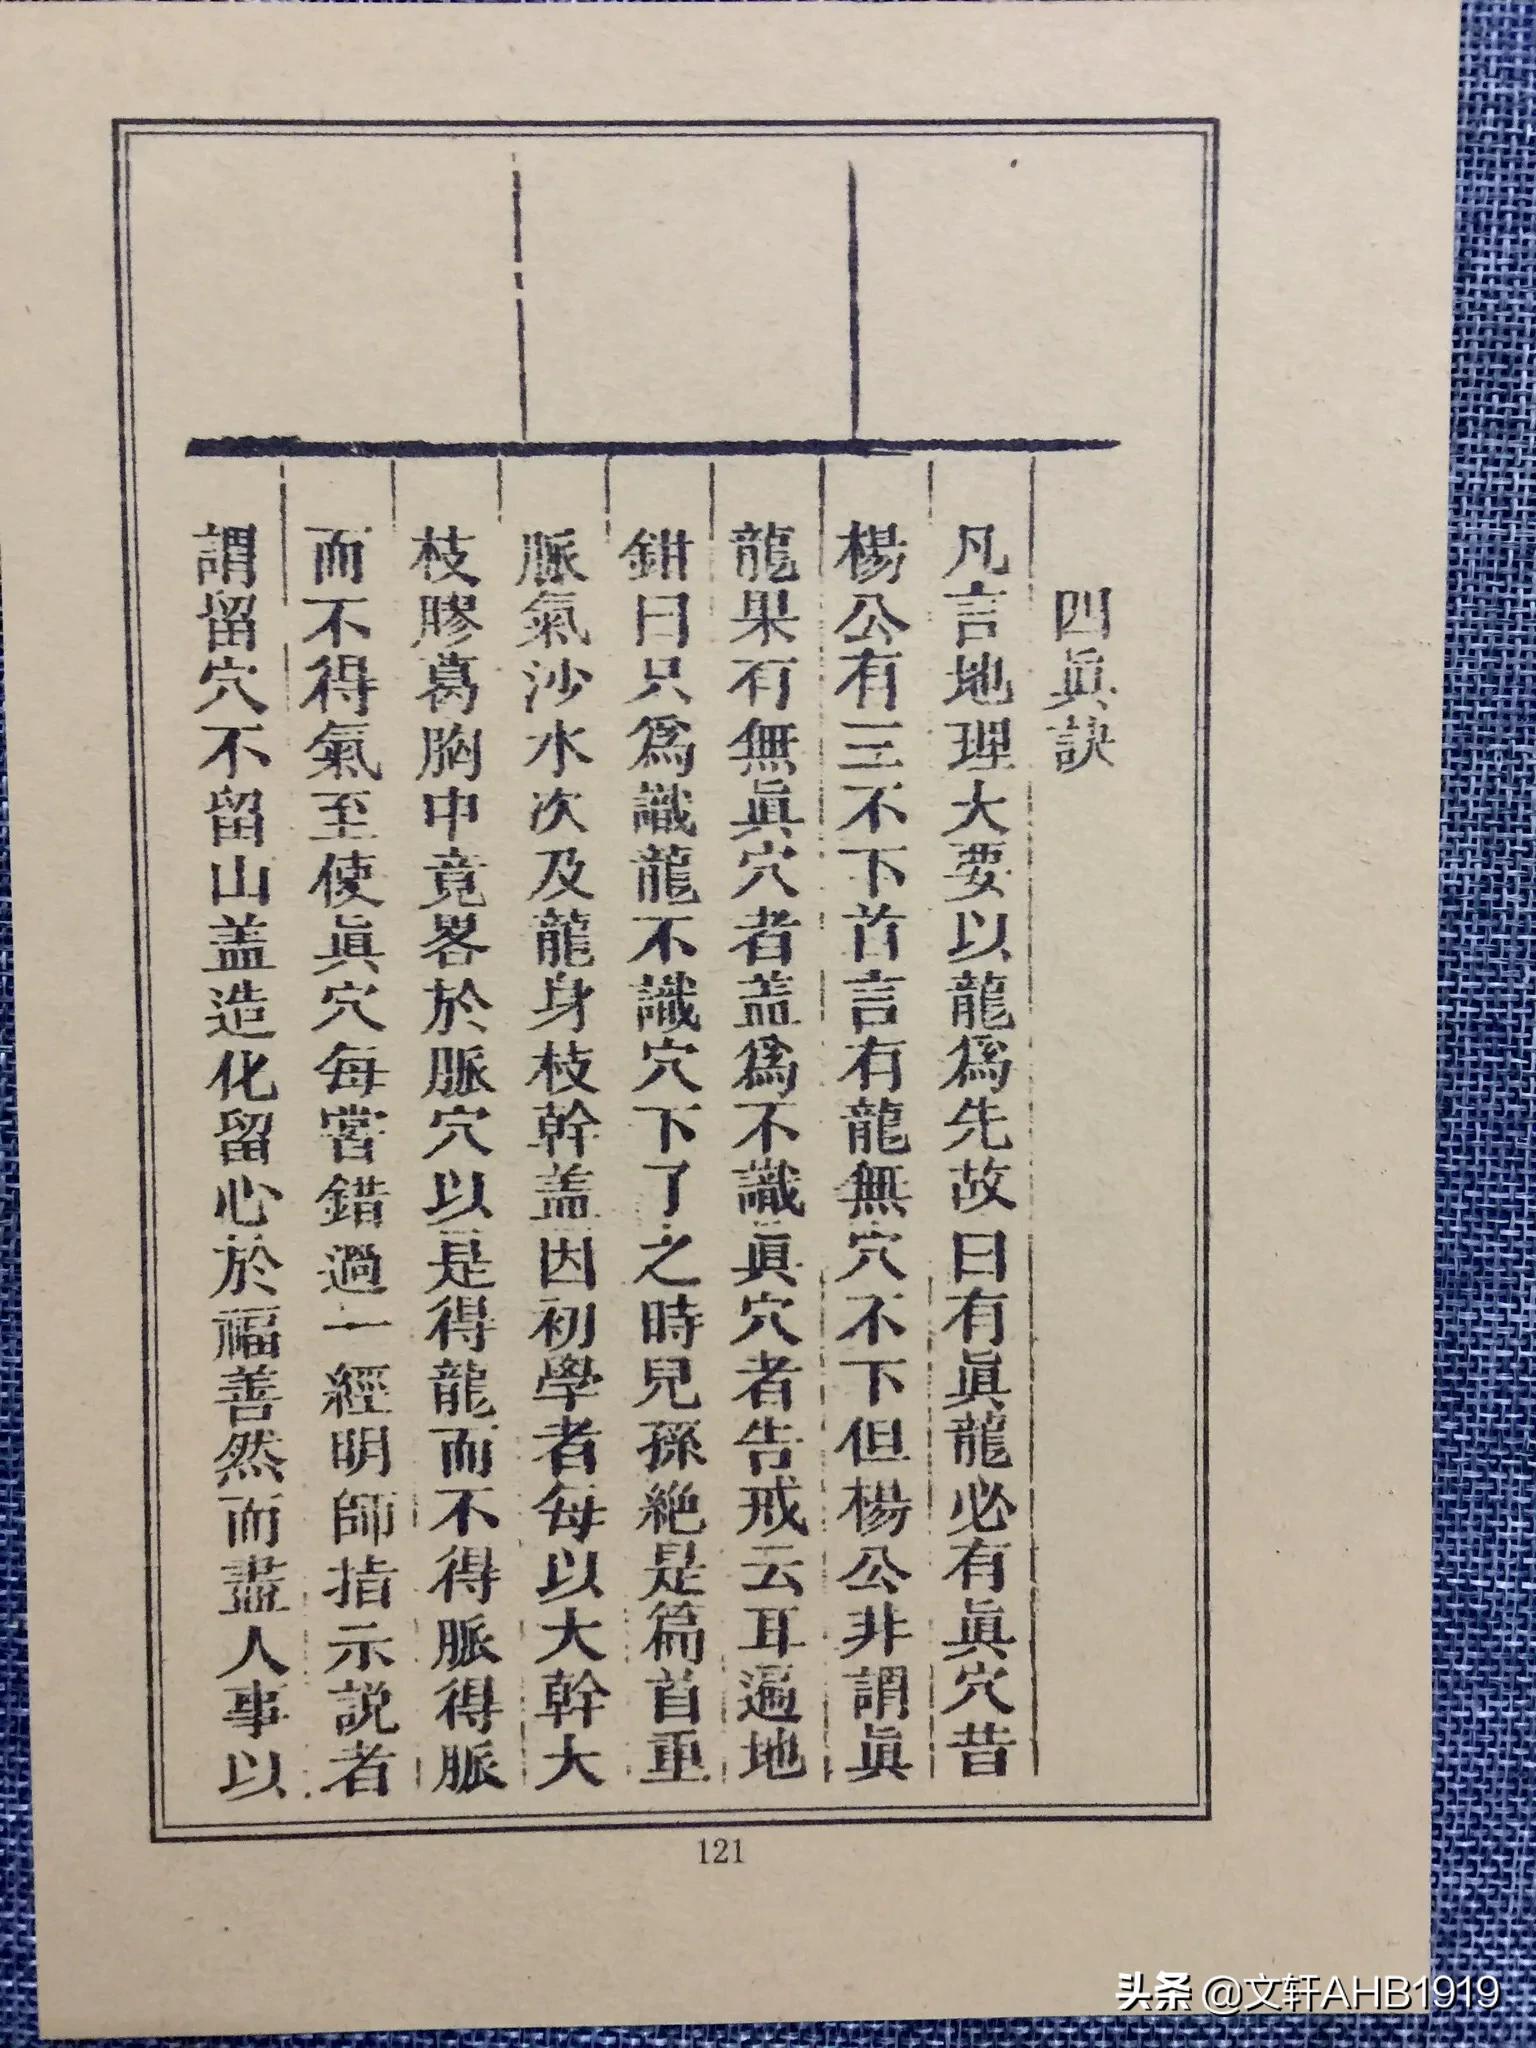 四眞訣
凡言地理大要以龍爲先故曰有眞龍必有眞穴昔
楊公有三不下首言有龍無穴不下但楊公非謂眞
龍果有無眞穴者盖爲不識眞穴者告戒云耳遍地
鉗曰只爲識龍不識穴下了之時兒孫絶是篇首重
脈氣沙水次及龍身枝幹盖因初學者每以大幹大
枝膠葛胸中竟畧於脈穴以是得龍而不得脈得脈
而不得氣至使眞穴每嘗錯過一經明師指示説者
謂留穴不留山盖造化留心於福善然而盡人事以
121
头条 @文轩AHB1919